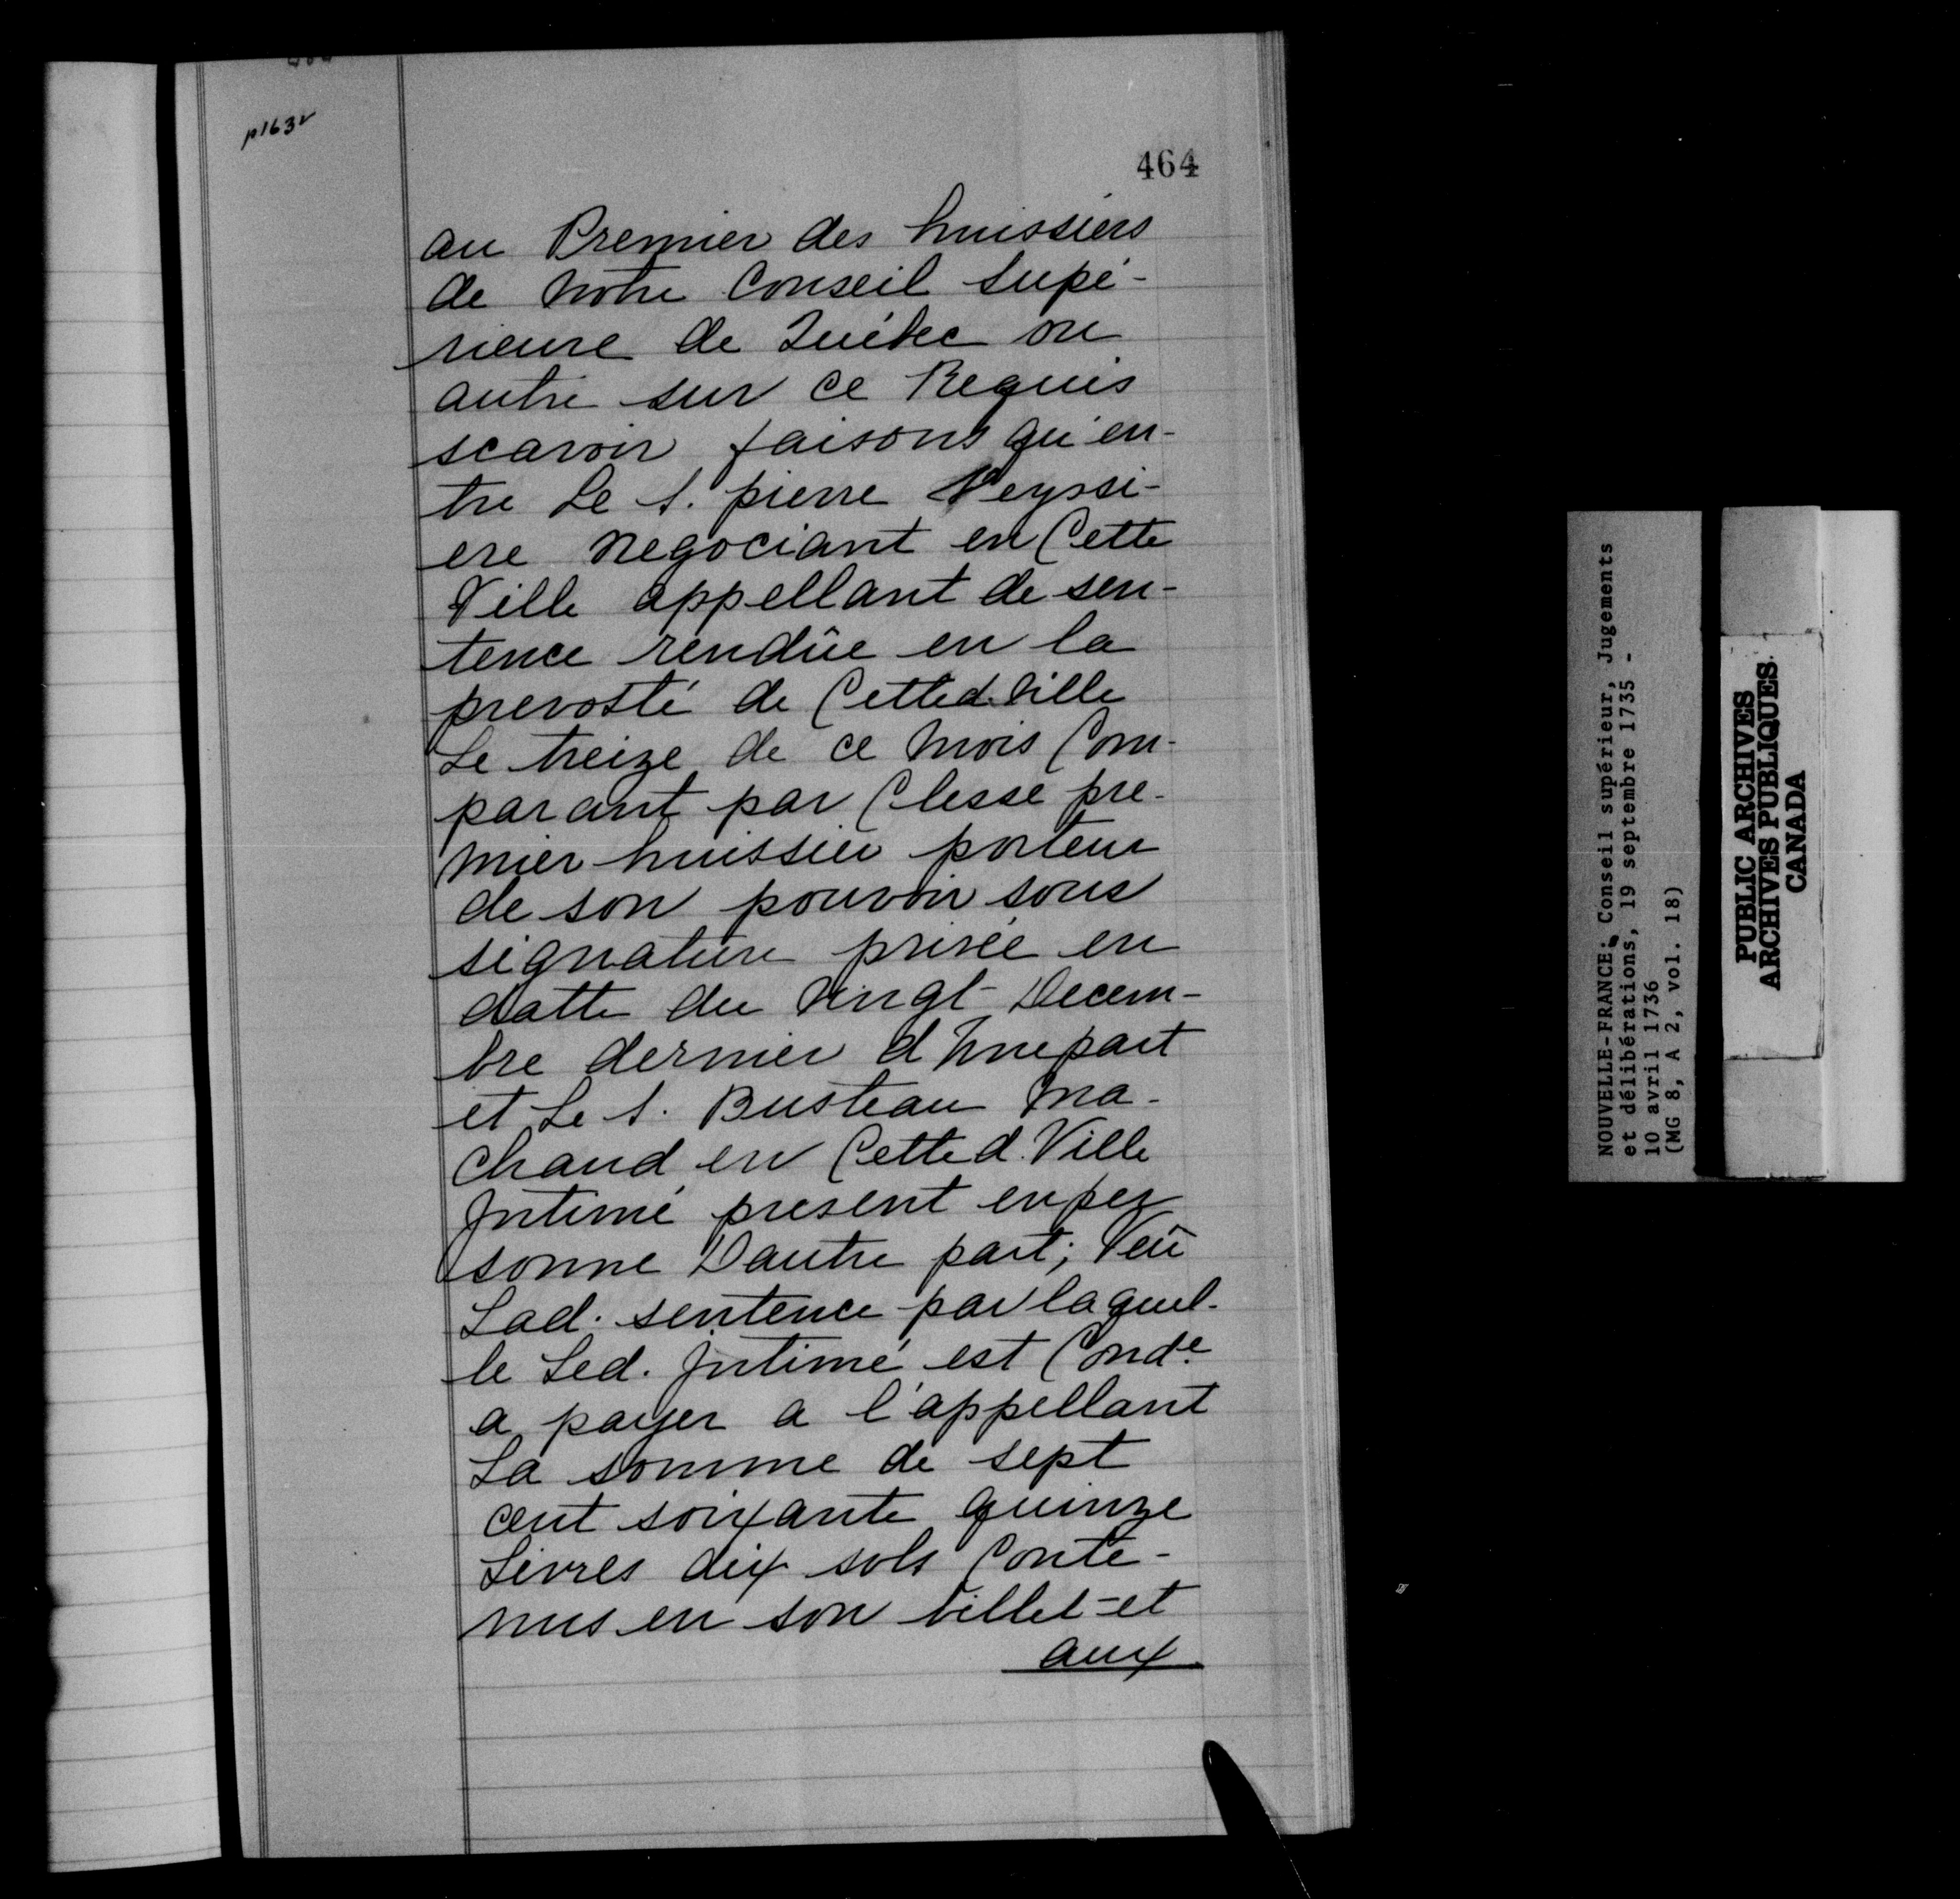 p163v
464
au Premier des huissiers
de notre Conseil supé-
rieure de Québec ou
autre sur ce Requis
scavoir faisons qu'en-
tre Le S. pierre Veyssi-
ere negociant en Cette
Ville appellant de sen-
tence rendûe en la
prevosté de Cetted. Ville
Le treize de ce mois Com-
parant par Clesse pre-
mier huissier porteur
de son pouvoir sous
signature privée en
datte du vingt Decem-
bre dernier d'Une part
et Le S. Busteau Ma-
chand en Cette d. Ville
Intimé present en per
sonne D'autre part; Veû
Lad. sentence par laquel-
le Led. Intimé est Conde.
a payer a l'appellant
La somme de sept
cent soixante quinze
Livres dix sols Conte-
nus en son billet = et
aux
NOUVELLE-FRANCE: Conseil supérieur, Jugements
et délibérations, 19 septembre 1735 -
10 avril 1736
(MG 8, A 2, vol. 18)
PUBLIC ARCHIVES
ARCHIVES PUBLIQUES
CANADA